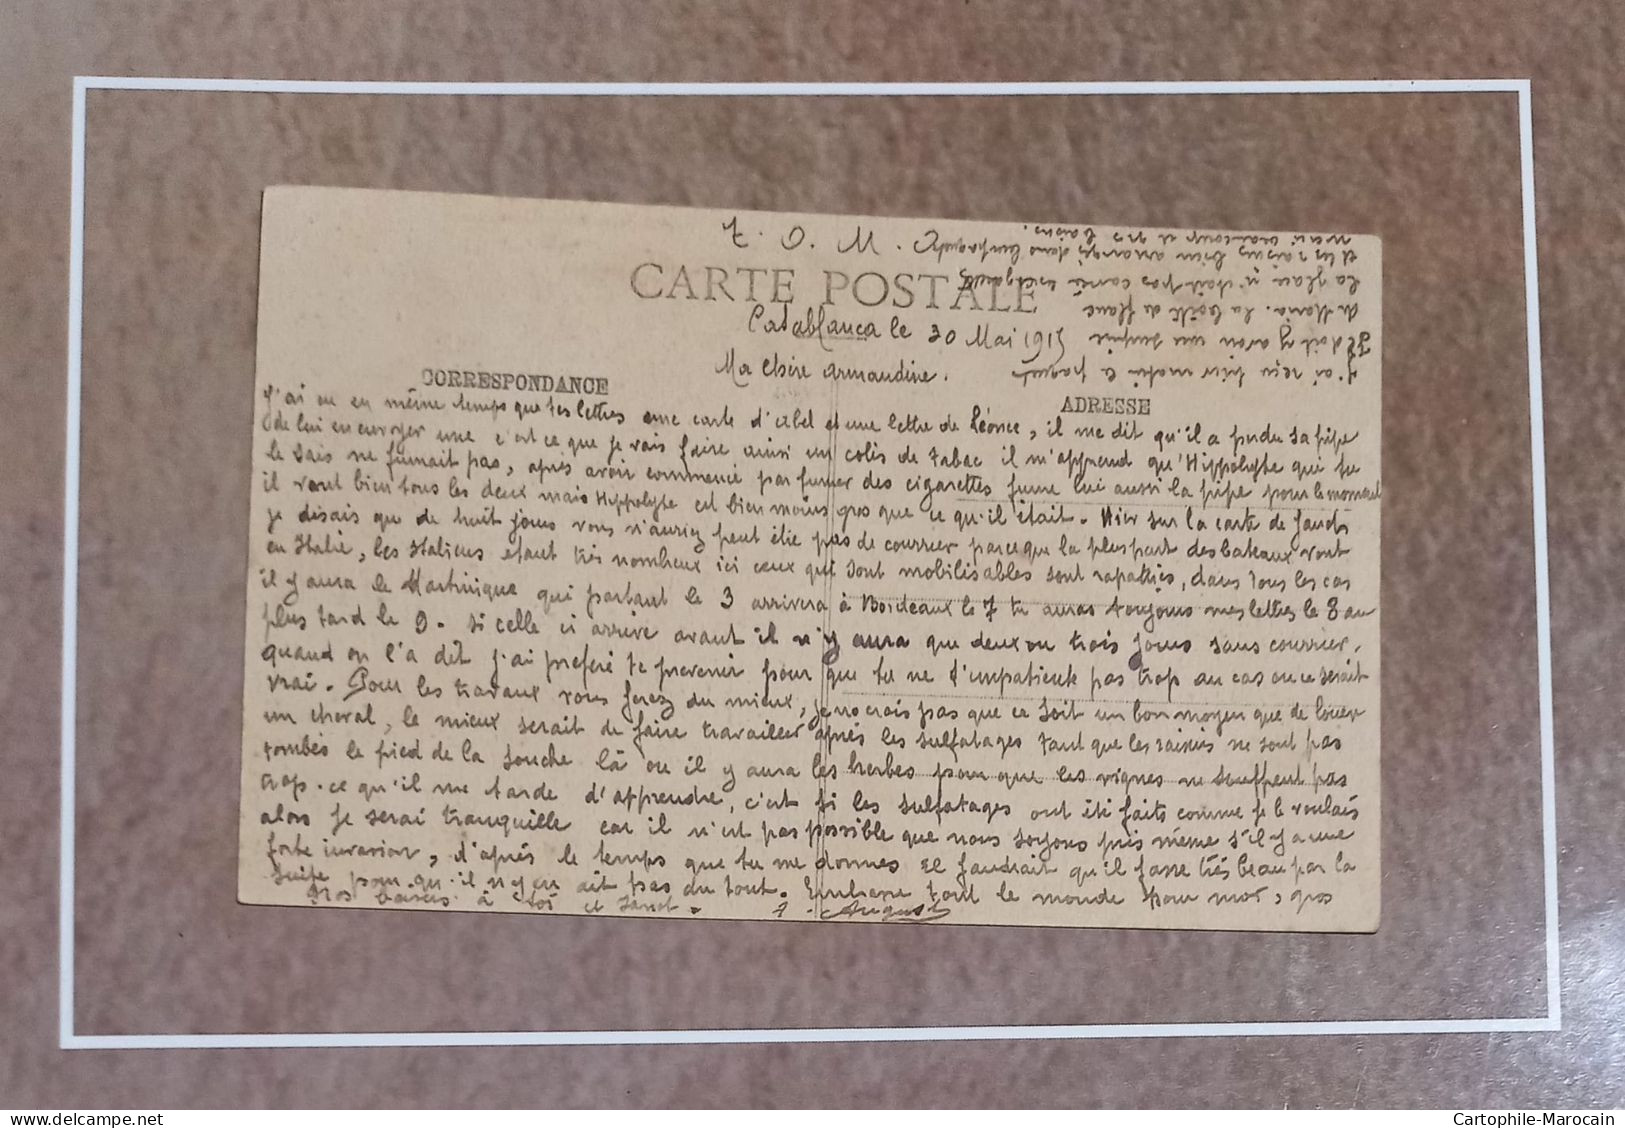 T. O. M.
CARTE POSTALE
Casablanca le 30 Mai 1915
Ma chère Armandine.
CORRESPONDANCE
ADRESSE
J'ai eu en même temps que tes lettres une carte d'Abel et une lettre de Léonce, il me dit qu'il a perdu sa pipe
de lui en envoyer une c'est ce que je vais faire ainsi un colis de tabac il m'apprend qu'Hippolyte qui tu
le sais ne fumait pas, après avoir commencé par fumer des cigarettes fume lui aussi la pipe pour le moment
il vont bien tous les deux mais Hippolyte est bien moins gros que ce qu'il était. Hier sur la carte de
je disais que de huit jours vous n'auriez peut être pas de courrier parce que la pluspart des bateaux vont
en Italie, les Italiens étant très nombreux ici ceux qui sont mobilisables sont rapatriés, dans tous les cas
il y aura le Martinique qui partant le 3 arrivera à Bordeaux le 7 tu auras toujours mes lettres le 8 au
plus tard le 9. si celle ci arrive avant il n'y aura que deux ou trois jours sans courrier,
quand on l'a dit j'ai preferé te prevenir pour que tu ne t'impatiente pas trop au cas ou ce serait
vrai. Pour les travaux vous ferez du mieux, je ne crois pas que ce soit un bon moyen que de louer
un cheval, le mieux serait de faire travailler après les sulfatages tant que les raisins ne sont pas
tombés le pied de la souche là ou il y aura les herbes pour que les vignes ne souffrent pas
trop. ce qu'il me tarde d'apprendre, c'est si les sulfatages ont été faits comme je le voulais
alors je serai tranquille car il n'est pas possible que nous soyons pris même s'il y a une
forte invasion, d'après le temps que tu me donnes il faudrait qu'il fasse très beau par la
suite pour qu'il n'y en ait pas du tout. Embrasse tout le monde pour moi, gros
Gros baisers à toi et . Auguste
J'ai reçu hier matin le paquet
Il doit y avoir une
de Maria. La boîte de
la glace n'était pas cassée
et les raisins bien arrangés dans
merci beaucoup et gros baisers.
Cartophile-Marocain